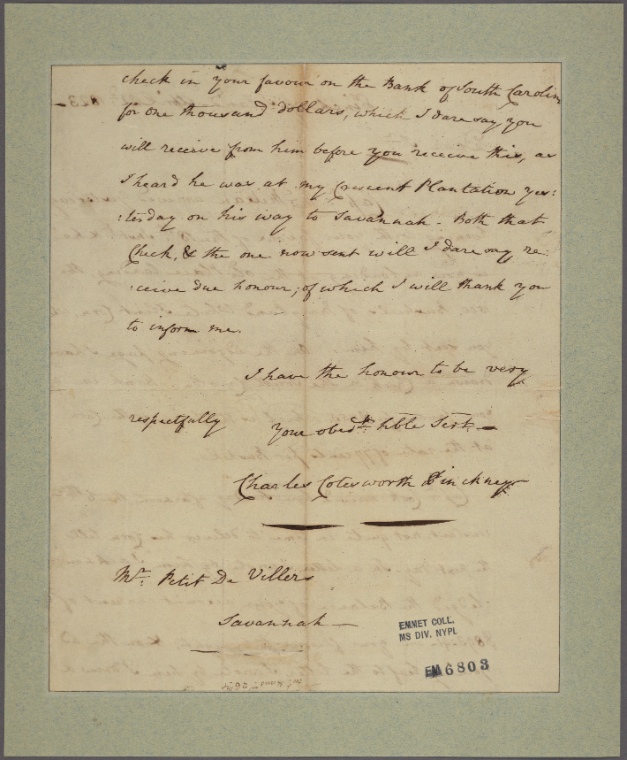 check in your favour on the Bank of South Carolin
for one thousand dollars, which I dare say you
will receive from him before you receive this, as
I heard he was at my Crescent Plantation yes:
:terday on his way to Savannah - Both that
Check, & the one now sent will I dare say re:
:ceive due honour; of which I will thank you
to inform me.
I have the honour to be very
respectfully your obedt. hble Servt. —
Charles Cotesworth Pinckney
Mr. Petit De Villers
Savannah —
EMMET COLL.
MS DIV. NYPL
EM 6803